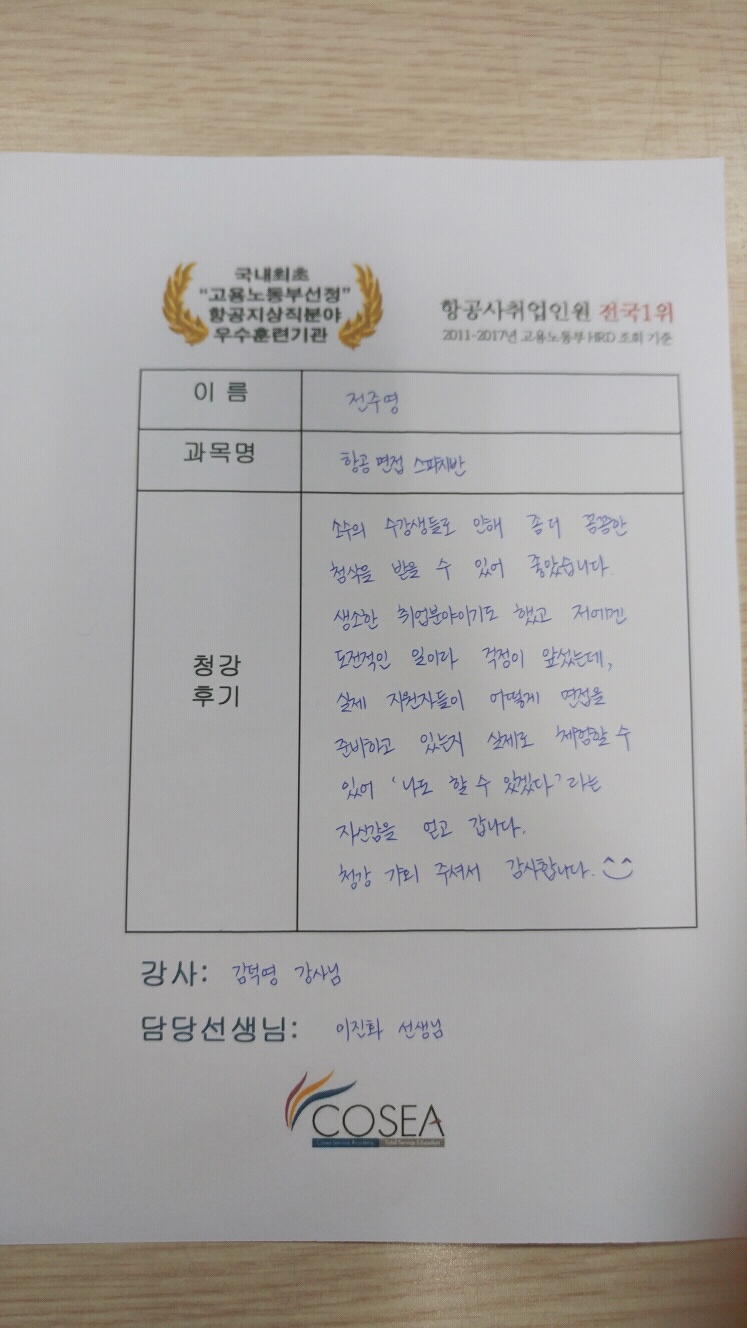 국내최초
"고용노동부선정"
항공지상직분야
우수훈련기관
항공사취업인원 전국1위
2011-2017년 고용노동부 HRD 조회 기준
이 름
전주영
과목명
항공 면접 스파르타반
소수의 수강생들로 인해 좀 더 꼼꼼한
첨삭을 받을 수 있어 좋았습니다.
생소한 취업분야이기도 했고 저에겐
도전적인 일이라 걱정이 앞섰는데,
청강
후기
실제 지원자들이 어떻게 면접을
준비하고 있는지 실제로 체험할 수
있어 '나도 할 수 있겠다'라는
자신감을 얻고 갑니다.
청강 기회 주셔서 감사합니다. ^^
강사: 김덕영 강사님
담당선생님: 이진화 선생님
COSEA
Cosea Service Academy Total Service Education